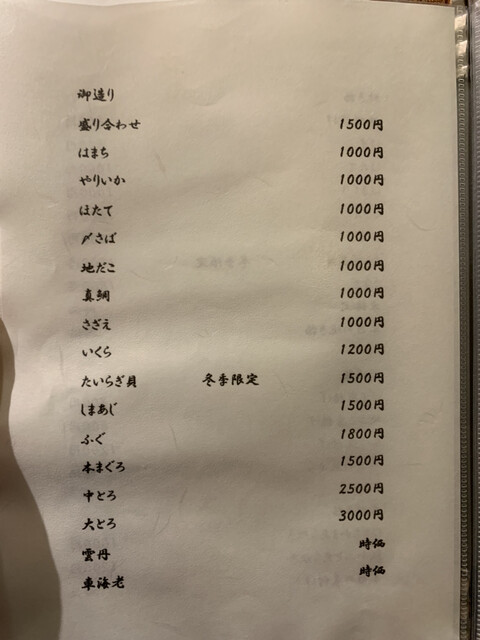 御造り
盛り合わせ 1500円
はまち 1000円
やりいか 1000円
ほたて 1000円
〆さば 1000円
地だこ 1000円
真鯛 1000円
さざえ 1000円
いくら 1200円
たいらぎ貝 冬季限定 1500円
しまあじ 1500円
ふぐ 1800円
本まぐろ 1500円
中とろ 2500円
大とろ 3000円
雲丹 時価
車海老 時価